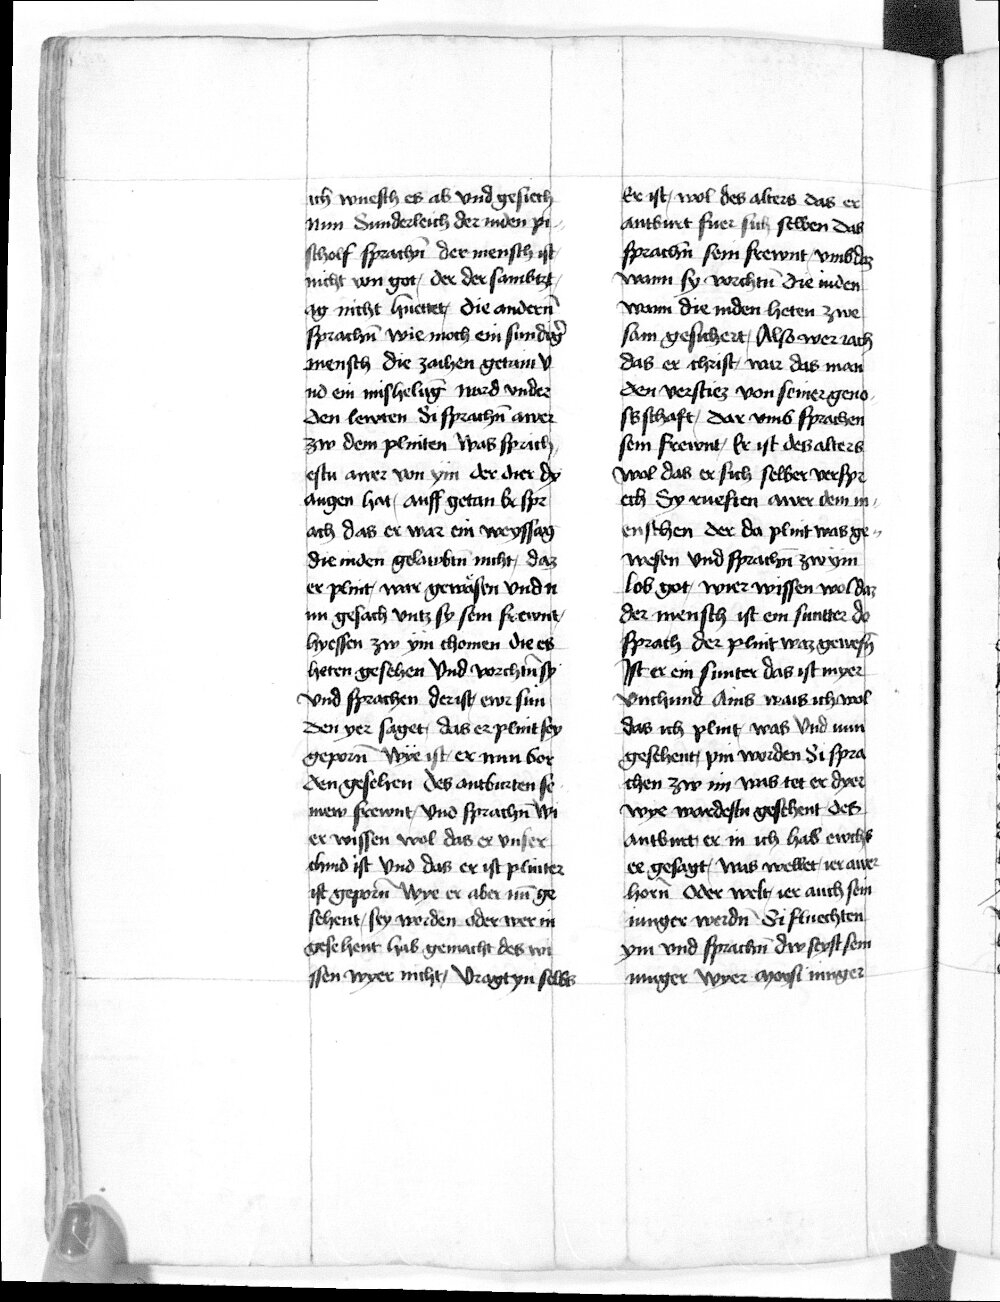 ich wuesch es ab vnd gesiech
Nun Sunderleich der inden pi-
scholf sprachn̄ der mensch ist
nicht von got der der sambtzt
ag nicht hn̄ettet die andern̄
sprachn̄ wie moch ein sundiḡ
mensch die zaihen getuin v
nd ein mishelinḡ ward vnder
den lewten Si sprachn̄ awer
zw dem plinten Was sprich
estu awer von ym der dier dy
augen hat auff getan Er spr
ach das er war ein weyssag
die inden gelaubtn̄ nicht daz
er plint war gewäsen vnd n
un gesach vntz sy sein frewnt
hyessen zw ym chomen die es
heten gesehen Vnd vorchtn̄ sy
vnd sprachen der ist ewr sun
den yer saget das er plint sey
geporn̄ Wye ist er nun bor
den gesehen des antburten se
inew frewnt vnd sprachn̄ Wi
er wissen wol das er vnser
chind ist vnd das er ist plinter
ist geporn̄ Wye er aber nun ge
sehent sey worden oder wer in
gesehent hab gemacht des wi
ssen wyer nicht Vragt yn selbs
Er ist wol des alters das er
antburt fuer sich selben das
sprachn̄ sein frewnt vmb daz
wann sy vorchtn̄ die inden
wann die inden heten zwe
sam gesichert Also wer iach
das er christ war das man
den verstiez von seiner geno-
sschaft Dar vmb sprachen
sein frewnt Er ist des alters
wol das er sich selber verspr
ech Sy rueften awer dem m-
enschen der da plint was ge-
wesen vnd sprachn̄ zw ym
lob got wier wissen wol daz
der mensch ist ein suntter do
sprach der plint waz gewesn̄
Ist er ein sunter das ist myer
vnchund Ains wais ich wol
das ich plint was vnd nun
gesehent pin worden Si spra
chen zw im was tet er dyer
wye wardestu gesehent des
antburt er in ich hab ewchs
ee gesagt was wellet ier awer
horn̄ oder welt ier auch sein
iunger werdn̄ Si fluechten
ym vnd sprachn̄ dw seyst sein
iunger wyer Moysi iunger